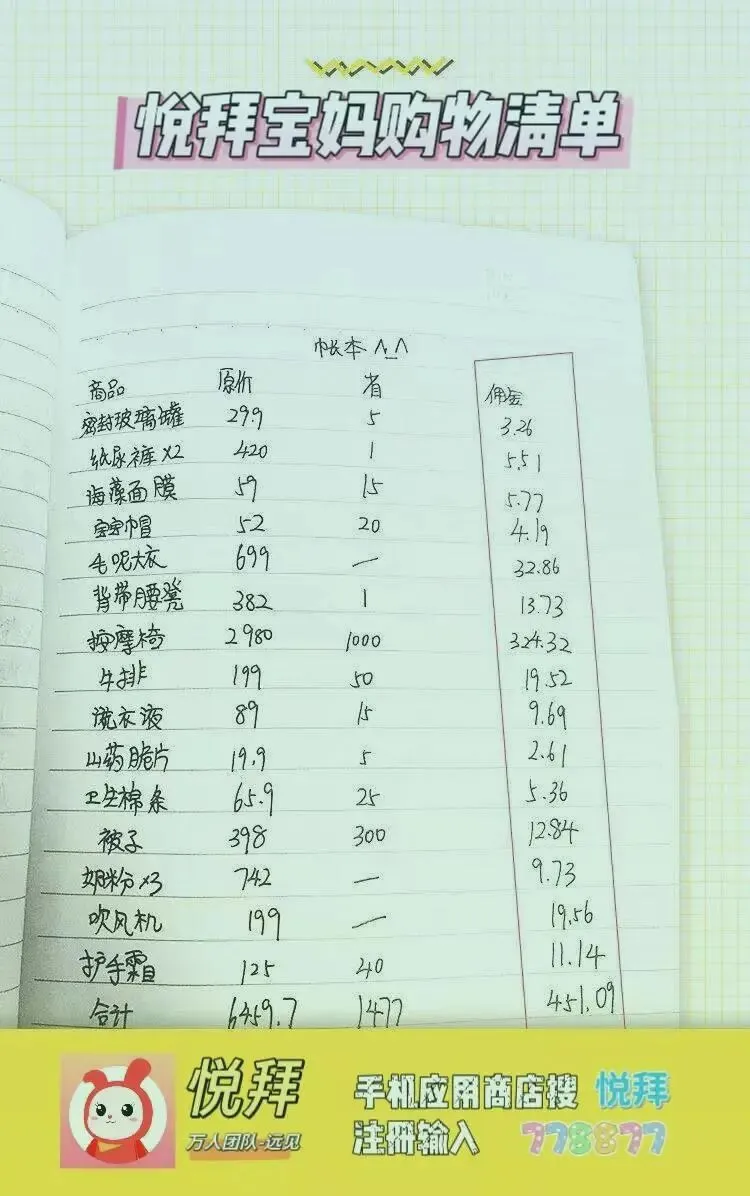 悦拜宝妈购物清单
帐本 ^_^
商品 原价 省 佣金
密封玻璃罐 29.9 5 3.26
纸尿裤 x2 420 1 5.51
海藻面膜 59 15 5.77
宝宝帽 52 20 4.19
毛呢大衣 699 — 32.86
背带腰凳 382 1 13.73
按摩椅 2980 1000 324.32
牛排 199 50 19.52
洗衣液 89 15 9.69
山药脆片 19.9 5 2.61
卫生棉条 65.9 25 5.36
被子 398 300 12.84
奶粉 x3 742 — 9.73
吹风机 199 — 19.56
护手霜 125 40 11.14
合计 6459.7 1477 451.09
悦拜 手机应用商店搜 悦拜
万人团队-远见 注册输入 778877